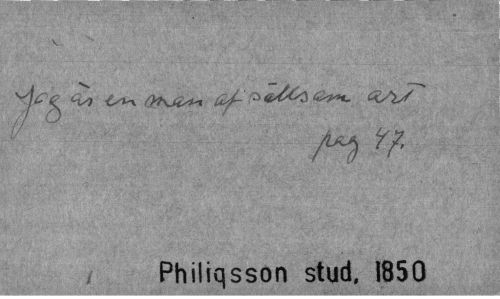 Jag är en man af sällsam art
pag 47.
Philiqsson stud, 1850